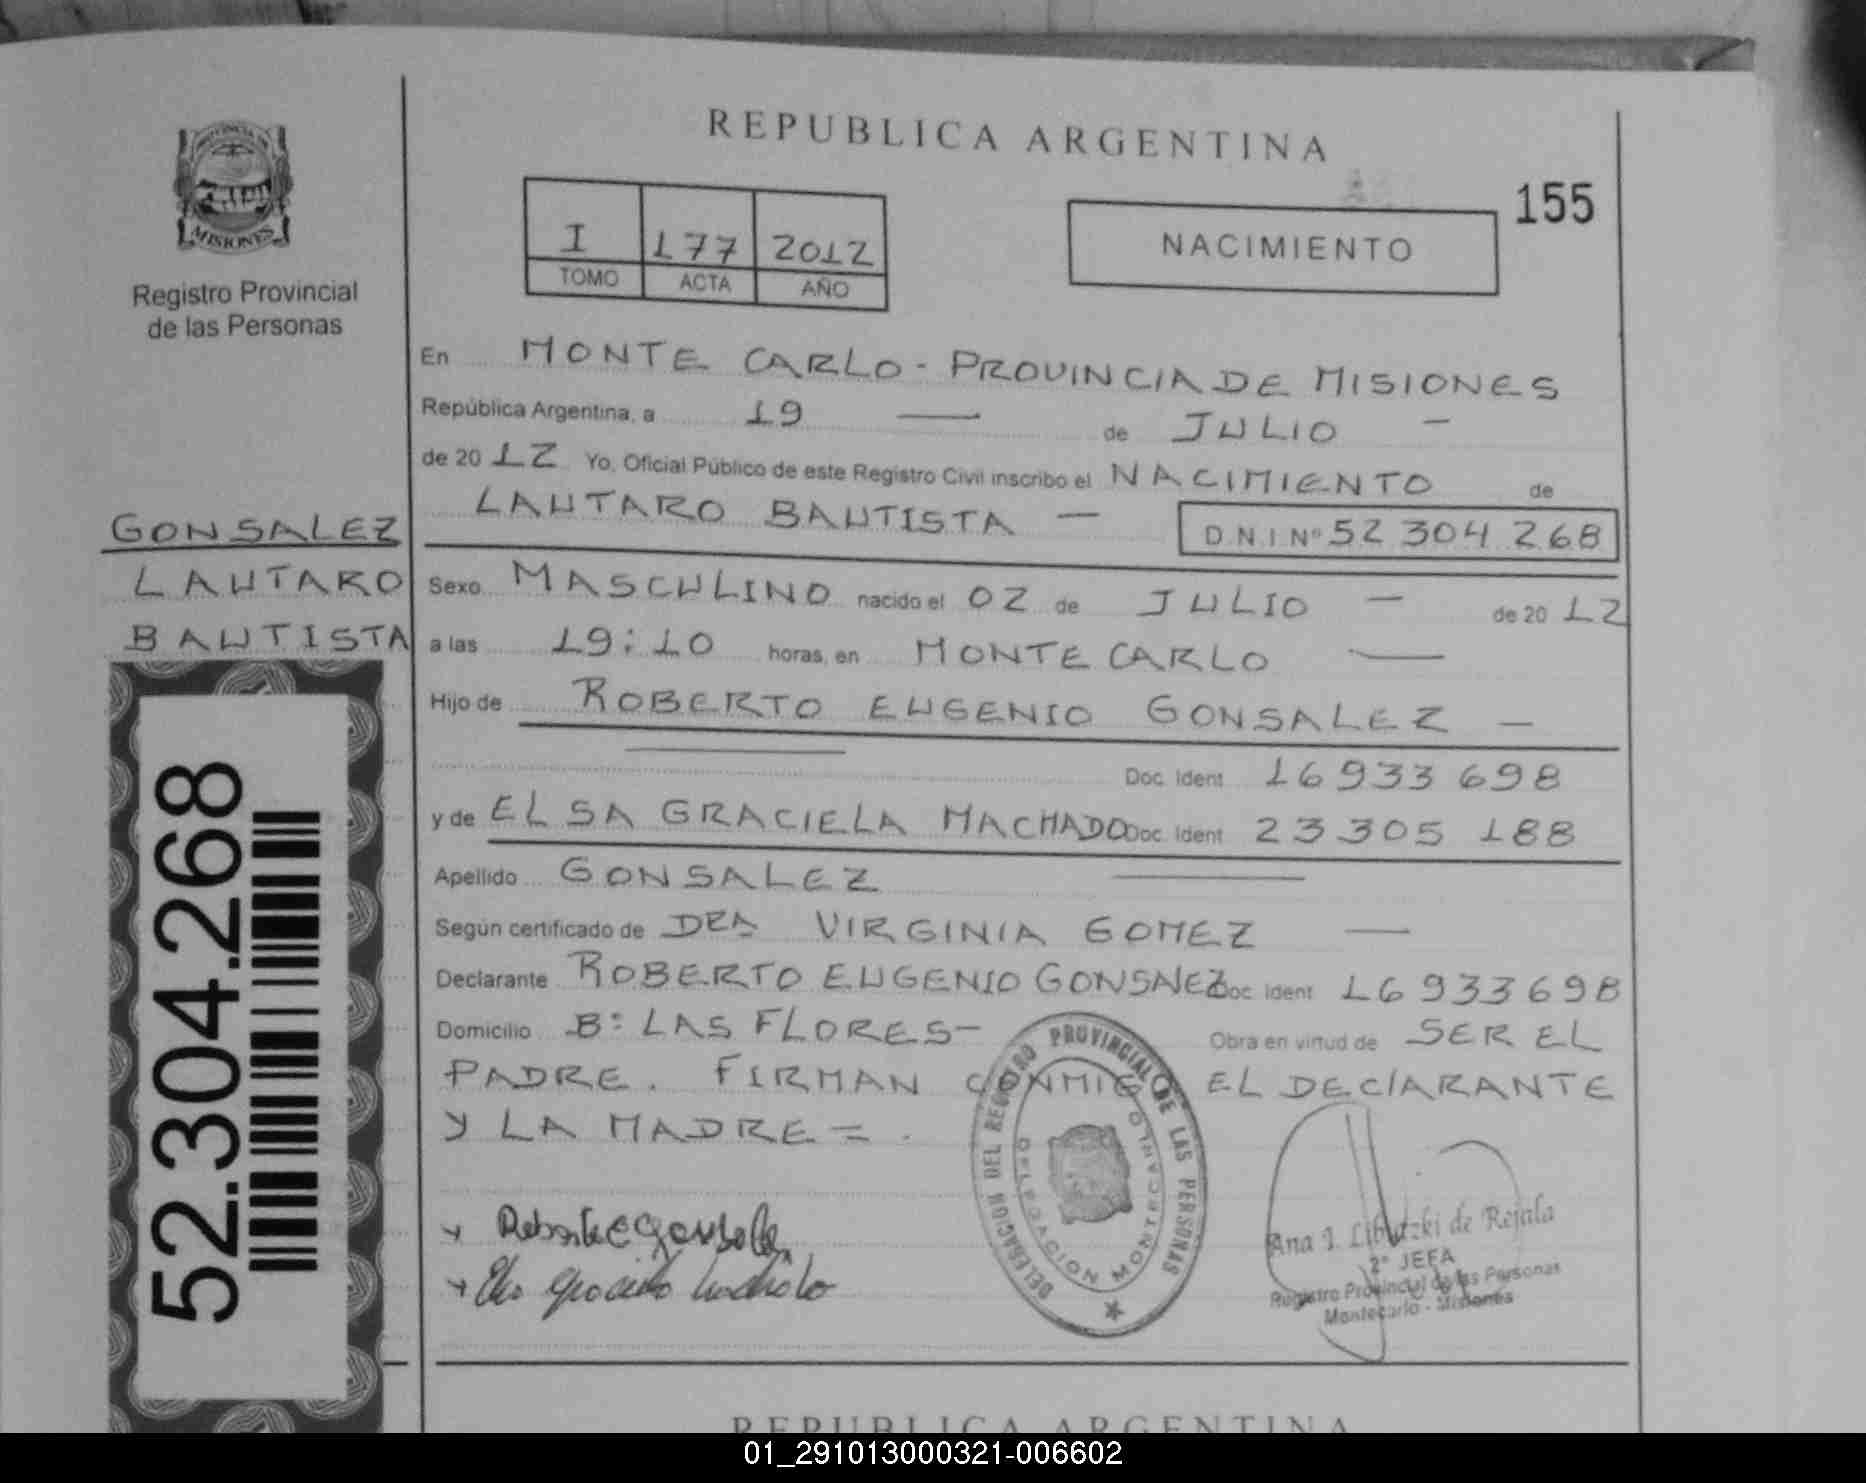 REPUBLICA ARGENTINA
155
I 177 2012
TOMO ACTA AÑO
NACIMIENTO
PROVINCIA DE
MISIONES
Registro Provincial
de las Personas
GONSALEZ
LAUTARO
BAUTISTA
52.304.268
En MONTE CARLO - PROVINCIA DE MISIONES
República Argentina, a 19 — de JULIO -
de 2012 Yo, Oficial Público de este Registro Civil inscribo el NACIMIENTO de
LAUTARO BAUTISTA — D.N.I Nº 52 304 268
Sexo MASCULINO nacido el 02 de JULIO — de 2012
a las 19:10 horas, en MONTE CARLO —
Hijo de ROBERTO EUGENIO GONSALEZ —
Doc. Ident 16933 698
y de ELSA GRACIELA MACHADO Doc. Ident 23305 188
Apellido GONSALEZ —
Según certificado de DRA VIRGINIA GOMEZ —
Declarante ROBERTO EUGENIO GONSALEZ Doc. Ident 16933698
Domicilio Bº LAS FLORES- Obra en virtud de SER EL
PADRE. FIRMAN CONMIGO EL DEClARANTE
Y LA MADRE = .
DELEGACION DEL REGISTRO PROVINCIAL DE LAS PERSONAS
DELEGACION MONTECARLO
Ana I. de Rejala
2º JEFA
Registro Provincial de las Personas
Montecarlo - Misiones
REPUBLICA ARGENTINA
01_291013000321-006602